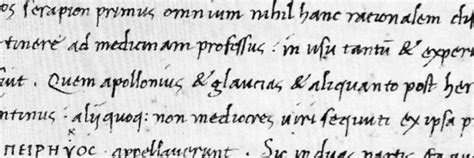 os serapion primus omnium nihil hanc rationalem dis
tinere ad medicinam professus: in usu tantũ & experi
uit. Quem apollonius & glaucias & aliquanto post her
ntinus: aliiquoq: non mediocres uiri sequuti ex ipsa p
ΠΕΙΡΗΥΟC appellauerunt. Sic in duas partis ea qu